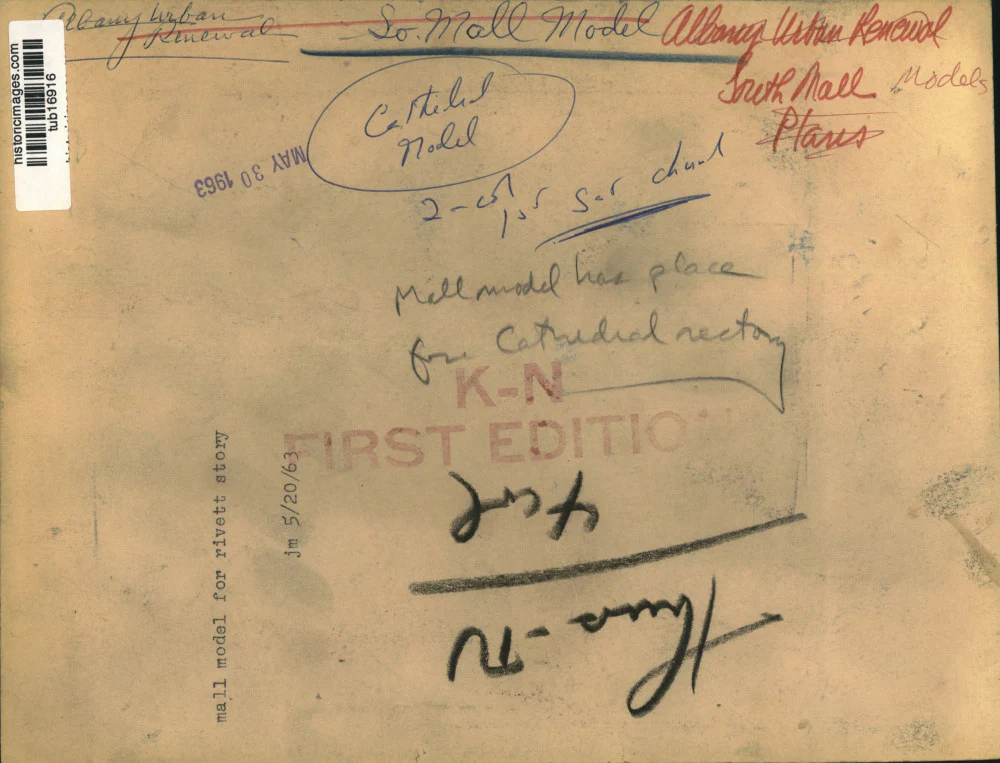 historicimages.com
tub16916
Albany Urban
Renewal
So. Mall Model
Albany Urban Renewal
South Mall Models
Plans
Cathedral
Model
MAY 30 1963
2-col
1st
Mall model has place
for Cathedral rectory
K-N
FIRST EDITION
mall model for rivett story
jm 5/20/63
Thurs-N